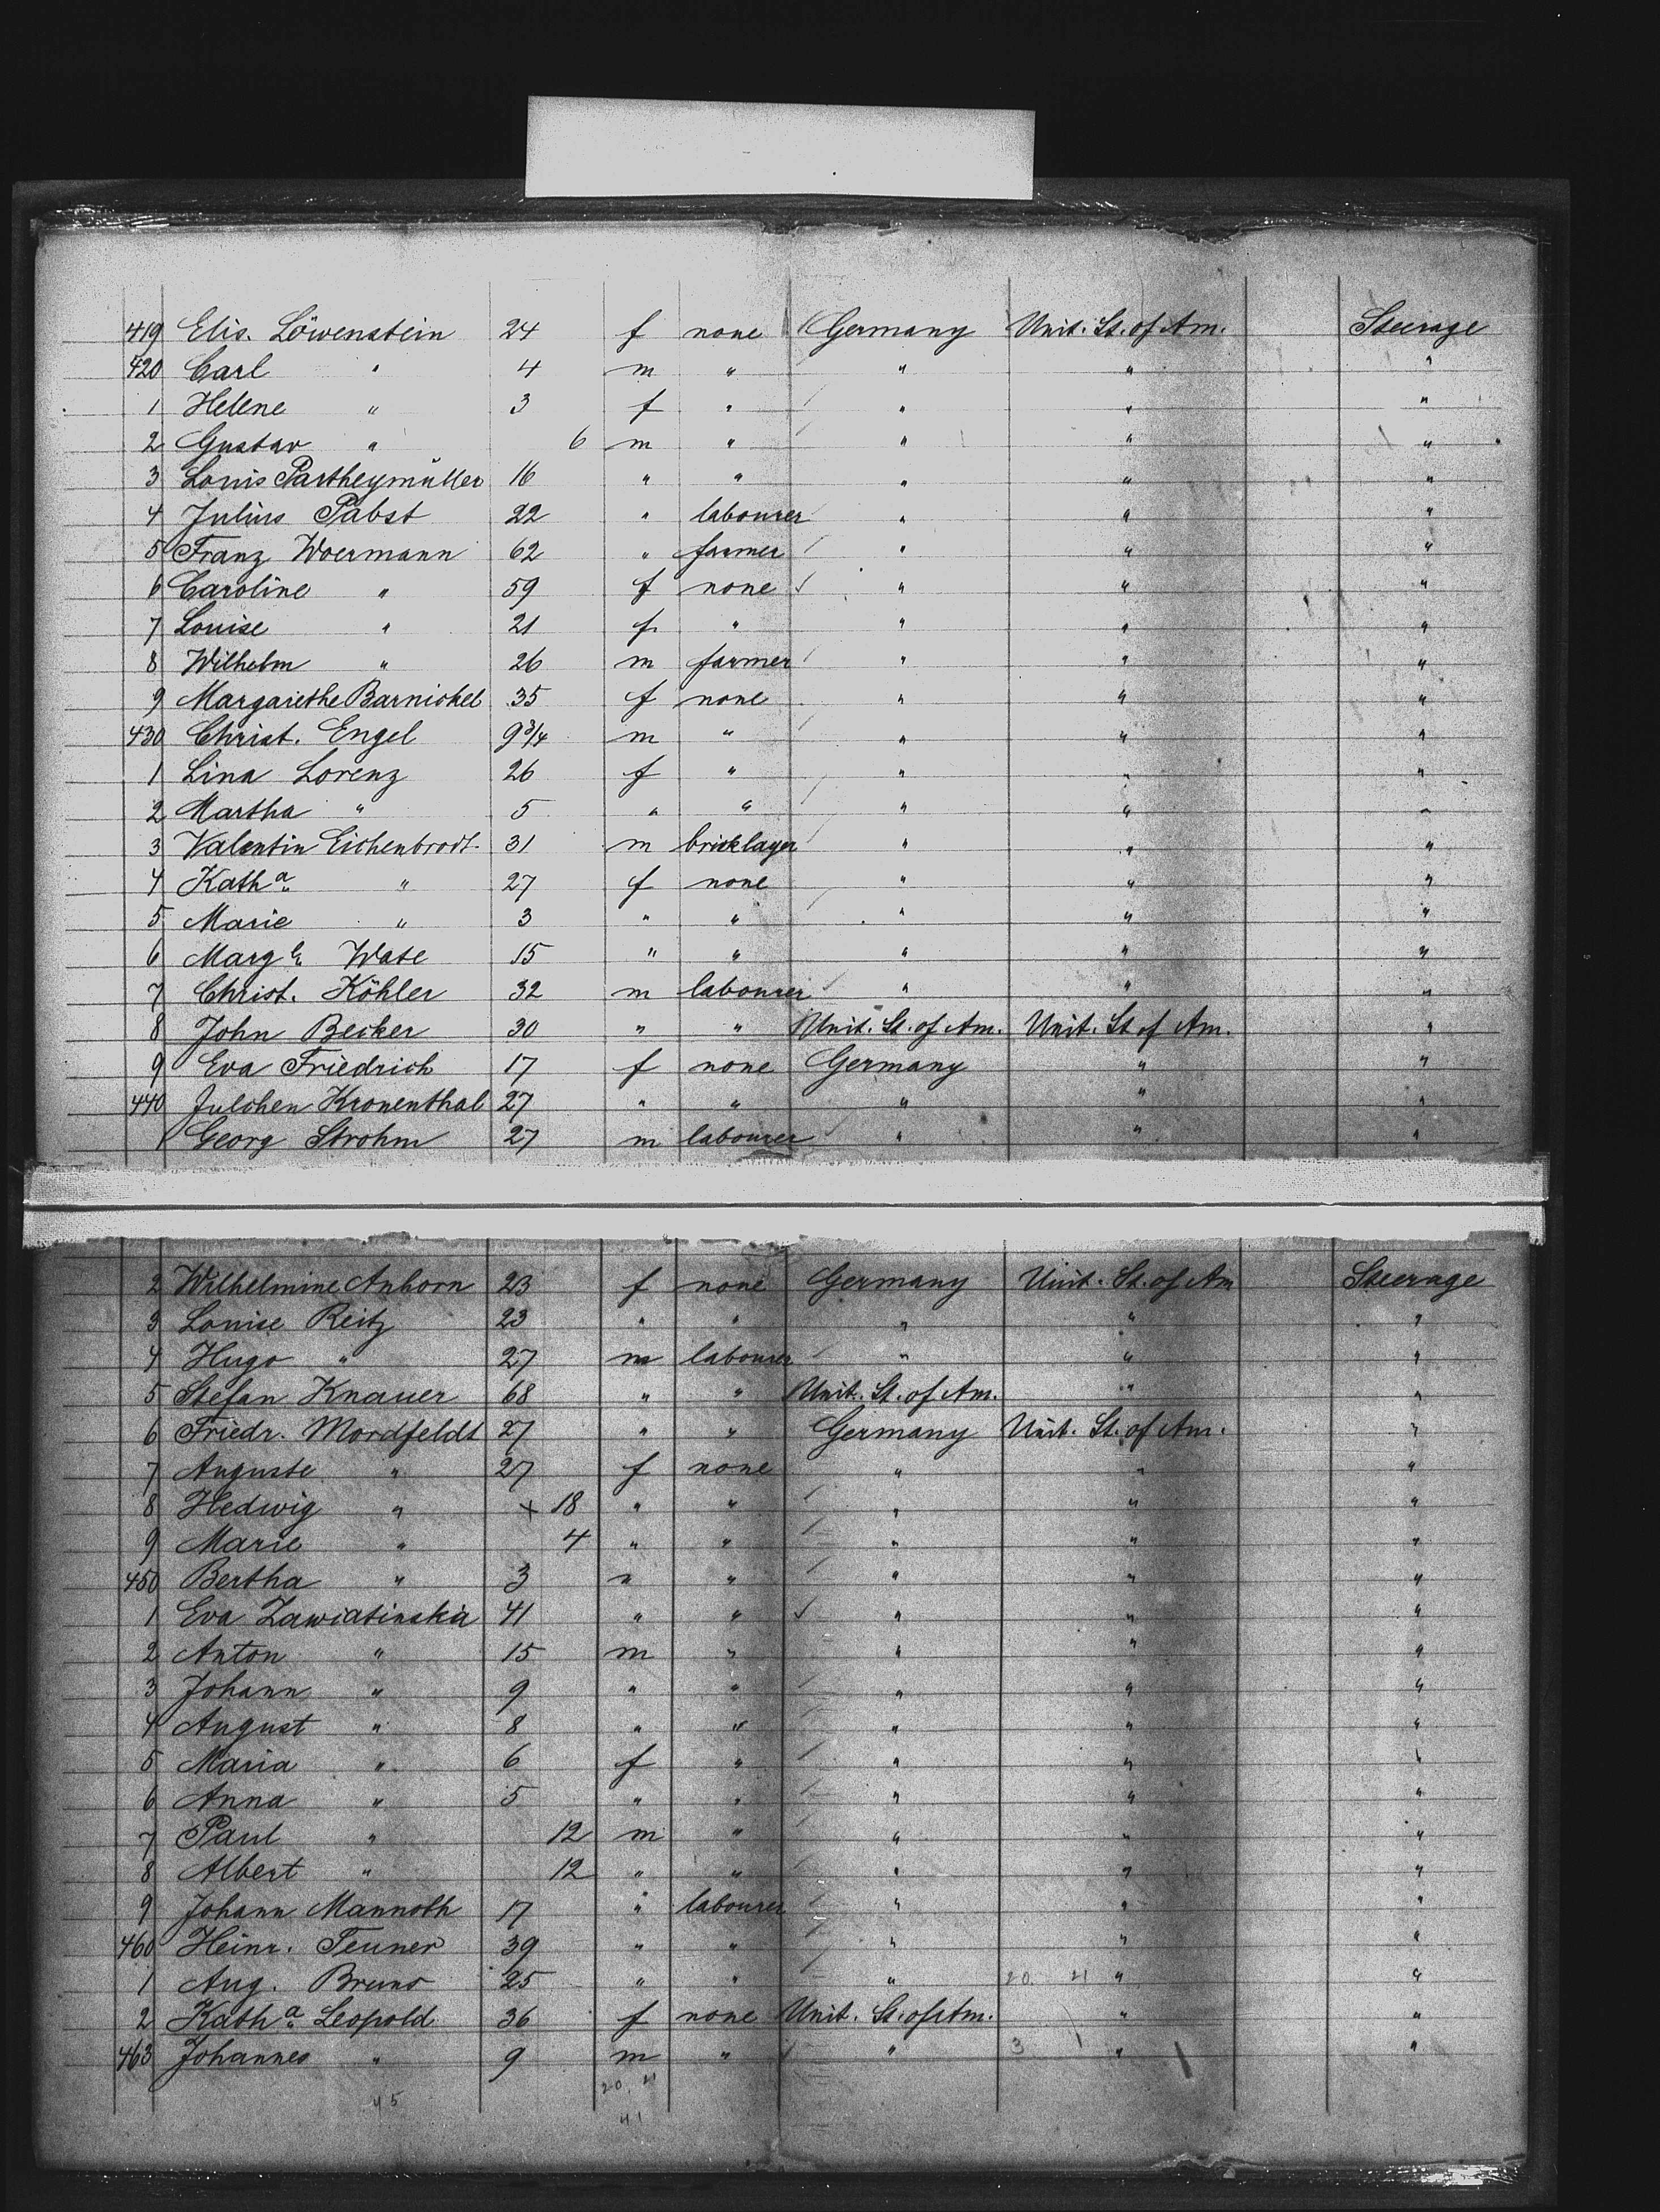 419 Elis. Löwenstein 24 f none Germany Unit. St. of Am. Steerage
420 Carl " 4 m " " " "
1 Helene " 3 f " " " "
2 Gustav " 6 m " " " "
3 Louis Partheymüller 16 " " " " "
4 Julius Pabst 22 " labourer " " "
5 Franz Woermann 62 " farmer " " "
6 Caroline " 59 f none " " "
7 Louise " 21 f " " " "
8 Wilhelm " 26 m farmer " " "
9 Margarethe Barnickel 35 f none " " "
430 Christ. Engel 9 3/4 m " " " "
1 Lina Lorenz 26 f " " " "
2 Martha " 5 " " " " "
3 Valentin Eichenbrodt 31 m bricklayer " " "
4 Katha " 27 f none " " "
5 Marie " 3 " " " " "
6 Margte Wate 15 " " " " "
7 Christ. Köhler 32 m labourer " " "
8 John Becker 30 " " Unit. St. of Am. Unit. St. of Am. "
9 Eva Friedrich 17 f none Germany " "
440 Julchen Kronenthal 27 " " " " "
1 Georg Strohm 27 m labourer " " "
2 Wilhelmine Anhorn 23 f none Germany Unit. St. of Am Steerage
3 Louise Reitz 23 " " " " "
4 Hugo " 27 m labourer " " "
5 Stefan Knauer 68 " " Unit. St. of Am. " "
6 Friedr. Mordfeldt 27 " " Germany Unit. St. of Am. "
7 Auguste " 27 f none " " "
8 Hedwig " x 18 " " " " "
9 Marie " 4 " " " " "
450 Bertha " 3 " " " " "
1 Eva Zawiatinska 41 " " " " "
2 Anton " 15 m " " " "
3 Johann " 9 " " " " "
4 August " 8 " " " " "
5 Maria " 6 f " " " "
6 Anna " 5 " " " " "
7 Paul " 12 m " " " "
8 Albert " 12 " " " " "
9 Johann Mannoth 17 " labourer " " "
460 Heinr. Teuner 39 " " " " "
1 Aug. Bruns 25 " " " 20 21 " "
2 Katha Leopold 36 f none Unit. St. of Am. " "
463 Johannes " 9 m " " 3 1 " "
20. 21
45
41